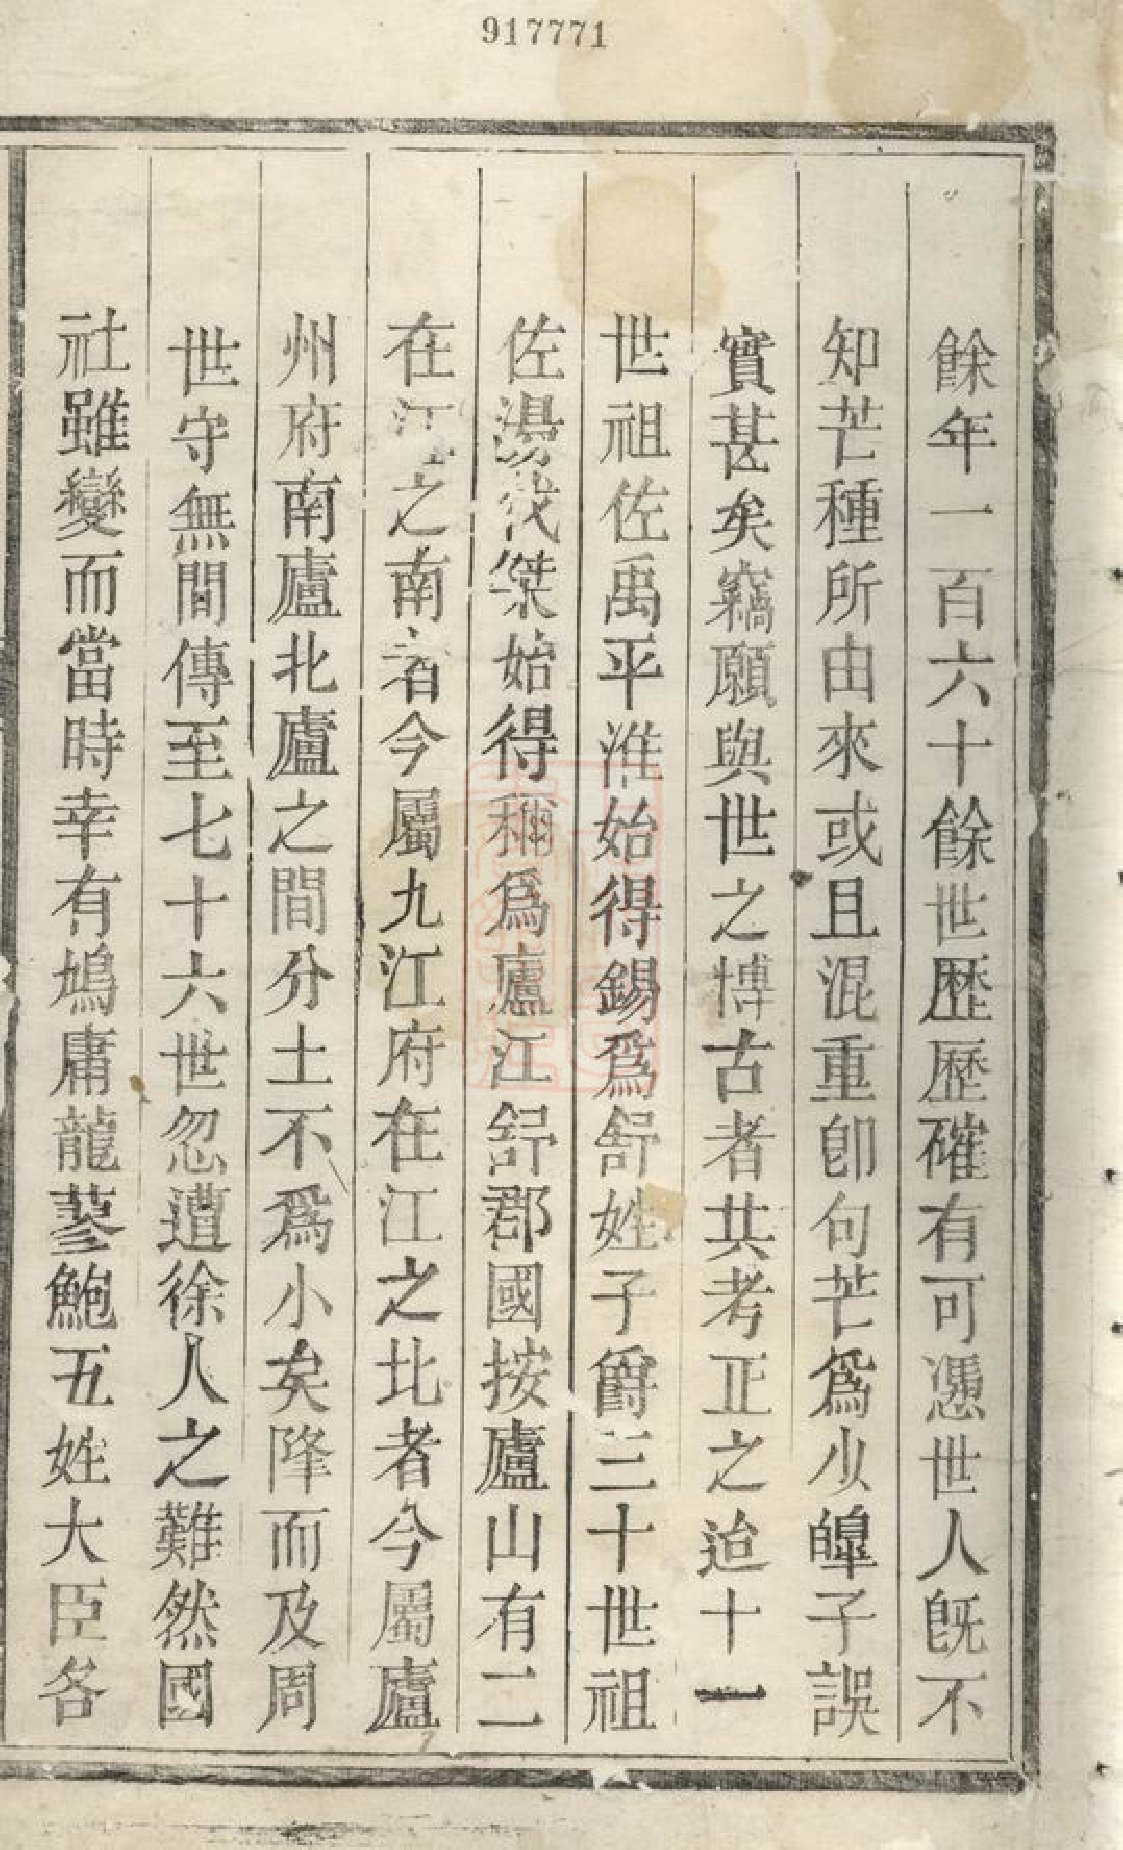 917771
餘年一百六十餘世歷歷確有可憑世人旣不
知芒種所由來或且混重卽句芒爲少皡子誤
實甚矣竊願與世之博古者共考正之迨十一
世祖佐禹平淮始得錫爲舒姓子爵三十世祖
佐湯伐桀始得稱爲廬江舒郡國按廬山有二
在江之南者今屬九江府在江之北者今屬廬
州府南廬北廬之間分土不爲小矣降而及周
世守無間傳至七十六世忽遭徐人之難然國
社雖變而當時幸有鳩庸龍蓼鮑五姓大臣各